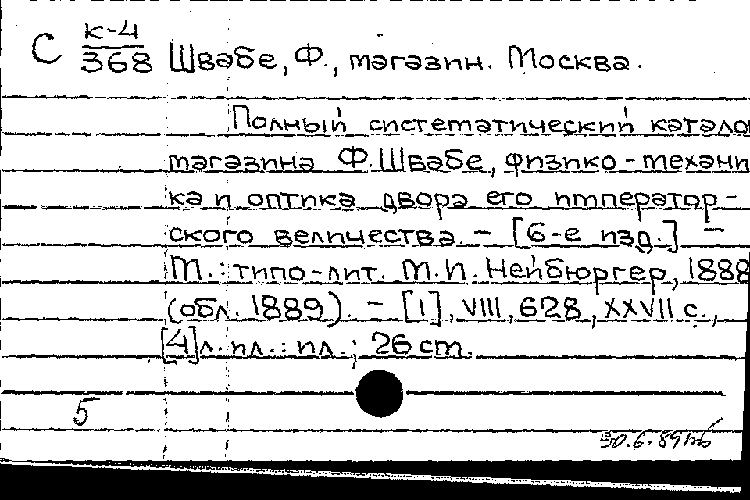 С К-4/368 Швабе, Ф., магазин. Москва.
Полный систематический катало
магазина Ф.Швабе, физико-механи
ка и оптика двора его император-
ского величества. - [6-е изд.] -
М.: типо-лит. М.И. Нейбюргер, 1888
(обл. 1889). - [1], VIII, 628, XXVII с.,
[4] л. ил.: ил.; 26 cm.
5
30.6.89